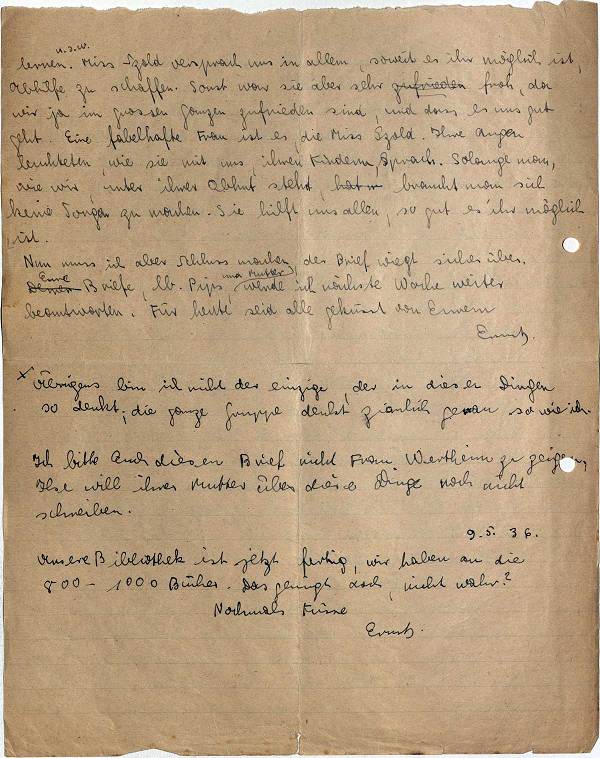 u.s.w.
lernen. Miss Szold versprach uns in allem, soweit es ihr möglich ist,
Abhilfe zu schaffen. Sonst war sie aber sehr zufrieden froh, da
wir ja im grossen ganzen zufrieden sind, und dass es uns gut
geht. Eine fabelhafte Frau ist es, die Miss Szold. Ihre Augen
leuchteten, wie sie mit uns, ihren Kindern, sprach. Solange man,
wie wir, unter ihrer Obhut steht, braucht man sich
keine Sorgen zu machen. Sie hilft uns allen, so gut es ihr möglich
ist.
Nun muss ich aber Schluss machen, der Brief wiegt sicher über.
Eure und Mutter
Deinen Briefe, lb. Pips, werde ich nächste Woche weiter
beantworten. Für heute seid alle geküsst von Eurem
Ernst.
x Übrigens bin ich nicht der einzige, der in diesen Dingen
so denkt; die ganze Gruppe denkt ziemlich genau so wie ich.
Ich bitte Euch diesen Brief nicht Frau Wertheim zu zeigen,
Ilse will ihrer Mutter über diese Dinge noch nicht
schreiben.
9.5.36.
Unsere Bibliothek ist jetzt fertig, wir haben an die
800 - 1000 Bücher. Das genügt doch, nicht wahr?
Nochmals Küsse
Ernst.